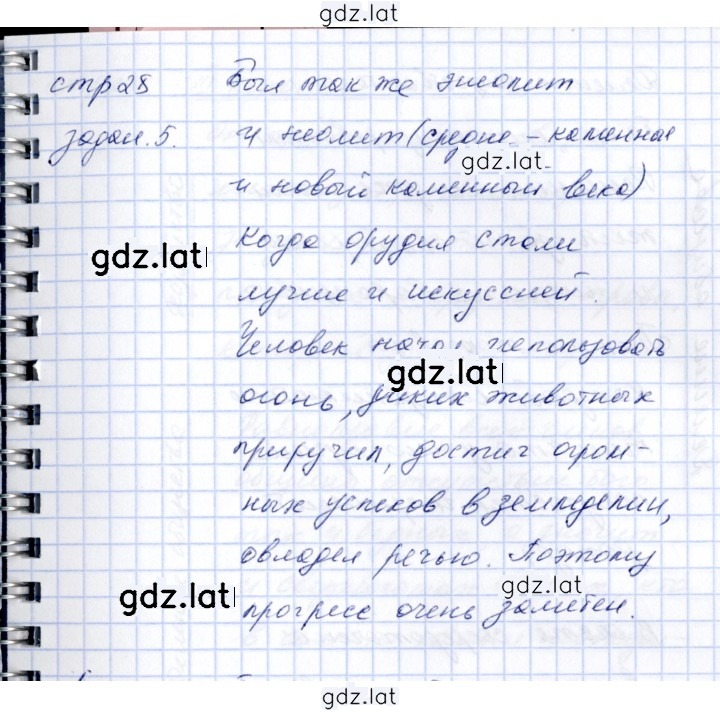 gdz.lat
стр 28 Был так же энолит
задан. 5. и неолит (средне - каменная
gdz.lat
и новый каменный века)
Когда орудия стали
gdz.lat
лучше и искуссней.
Человек начал использовать
gdz.lat
огонь, диких животных
приручил, достиг огром-
ных успехов в земледелии,
овладел речью. Поэтому
gdz.lat
gdz.lat
прогресс очень заметен.
gdz.lat